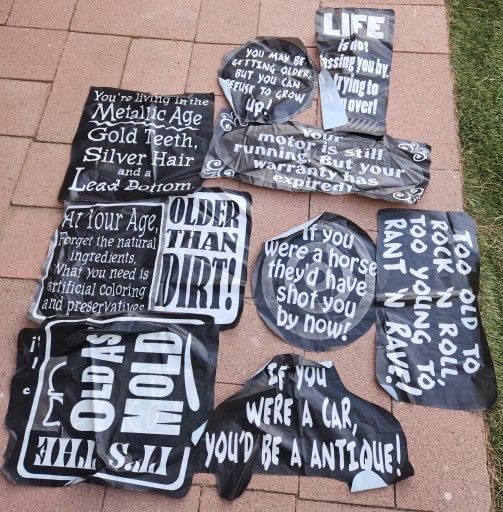 LIFE
is not
passing you by,
trying to
you over!
YOU MAY BE
GETTING OLDER
BUT YOU CAN
REFUSE TO GROW
UP!
You're living in the
Metallic Age
Gold Teeth,
Silver Hair
and a
Lead Bottom.
Your
motor is still
running. But your
warranty has
expired!
At Your Age,
Forget the natural
ingredients,
What you need is
artificial coloring
and preservatives
OLDER
THAN
DIRT!
If you
were a horse
they'd have
shot you
by now!
TOO OLD TO
ROCK 'N ROLL,
TOO YOUNG TO
RANT 'N RAVE!
IT'S THE
OLD AS
MOLD
IF YOU
WERE A CAR,
YOU'D BE A ANTIQUE!